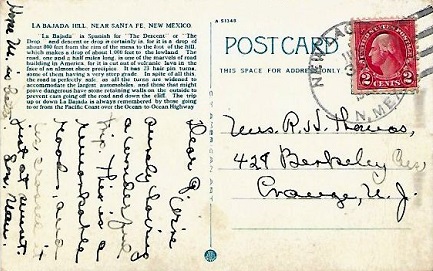 LA BAJADA HILL, NEAR SANTA FE, NEW MEXICO.
"La Bajada" is Spanish for "The Descent" or "The
Drop" and descent or drop it certainly is, for it is a drop of
about 800 feet from the rim of the mesa to the foot of the hill,
which makes a drop of about 1,000 feet to the lowland. The
road, one and a half miles long, is one of the marvels of road
building in America, for it is cut out of volcanic lava in the
face of an almost sheer precipice. It has 23 hair pin turns,
some of them having a very steep grade. In spite of all this,
the road is perfectly safe, as all the turns are widened to
accommodate the largest automobiles, and those that might
prove dangerous have stone retaining walls on the outside to
prevent cars going off the road and down the cliff. The trip
up or down La Bajada is always remembered by those going
to or from the Pacific Coast over the Ocean to Ocean Highway
A 51348
POST CARD
THIS SPACE FOR ADDRESS ONLY
2 CENTS 2
N. MEX.
Mrs. R. H. Thomas,
429 Berkeley Ave,
Orange, N. J.
Dear
surely having
a wonderful
trip. This is a
remarkable
road, and
just at sunset.